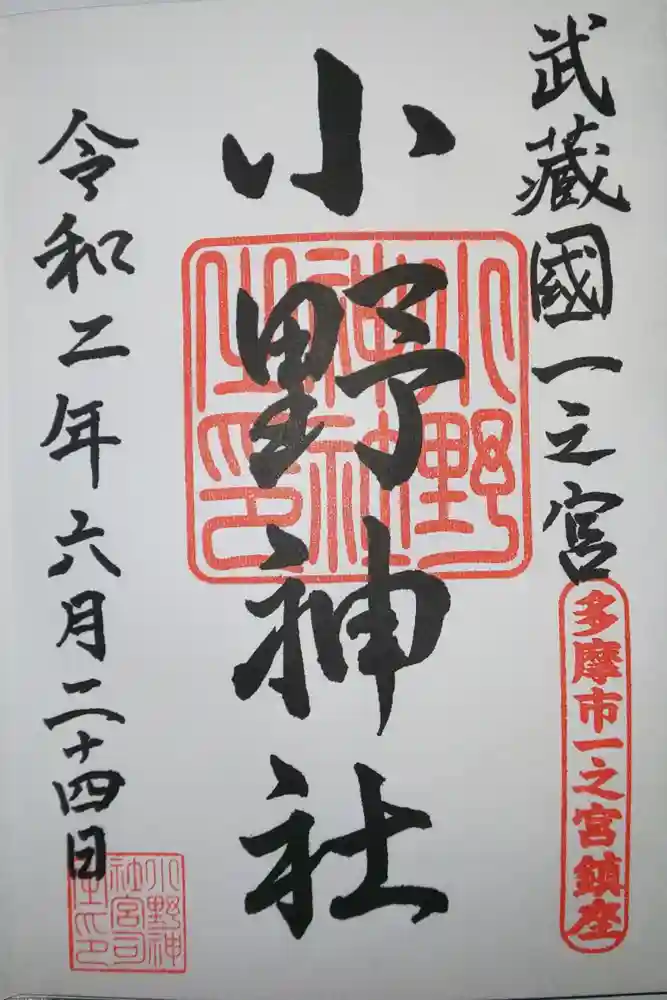 武藏國一之宮
多摩市一之宮鎮座
小野神社
小野神社之印
令和二年六月二十四日
小野神社宮司之印